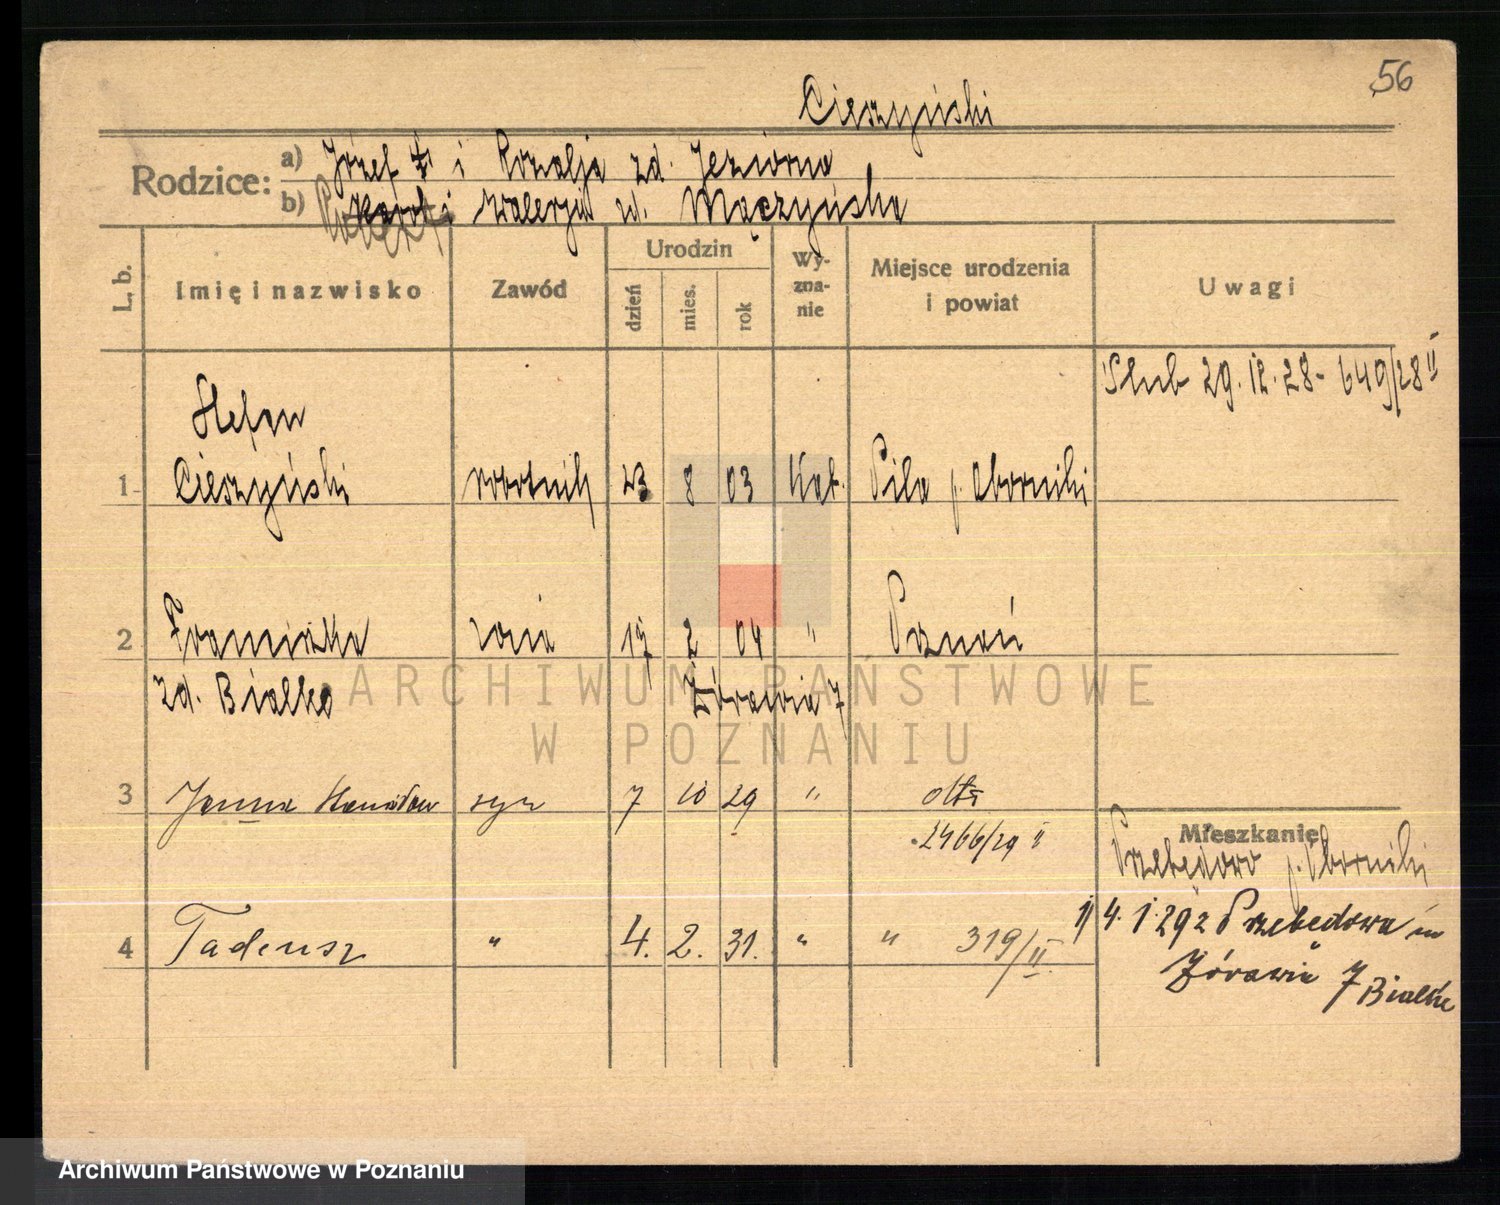 56
Cieszyński
Rodzice: a) Józef i Rozalja zd. Jeziorna
b) Karol i Walerja zd. Mączyńska
L. b. Imię i nazwisko Zawód Urodzin dzień mies. rok Wyznanie Miejsce urodzenia i powiat Uwagi
Ślub 29.12.28 - 649/28 II
Stefan
1 Cieszyński robotnik 23 8 03 Kat. Piła p. Oborniki
2 Franciszka żona 17 2 04 " Poznań
zd. Białka Żórawia 7
3 syn 7 10 29 "
2466/29 II
Mieszkanie
Przebędowo p. Oborniki
4 Tadeusz " 4. 2. 31. " " 319/II
4. 1. 29 z Przebędowa
Żórawia 7 Białka
ARCHIWUM PAŃSTWOWE
W POZNANIU
Archiwum Państwowe w Poznaniu